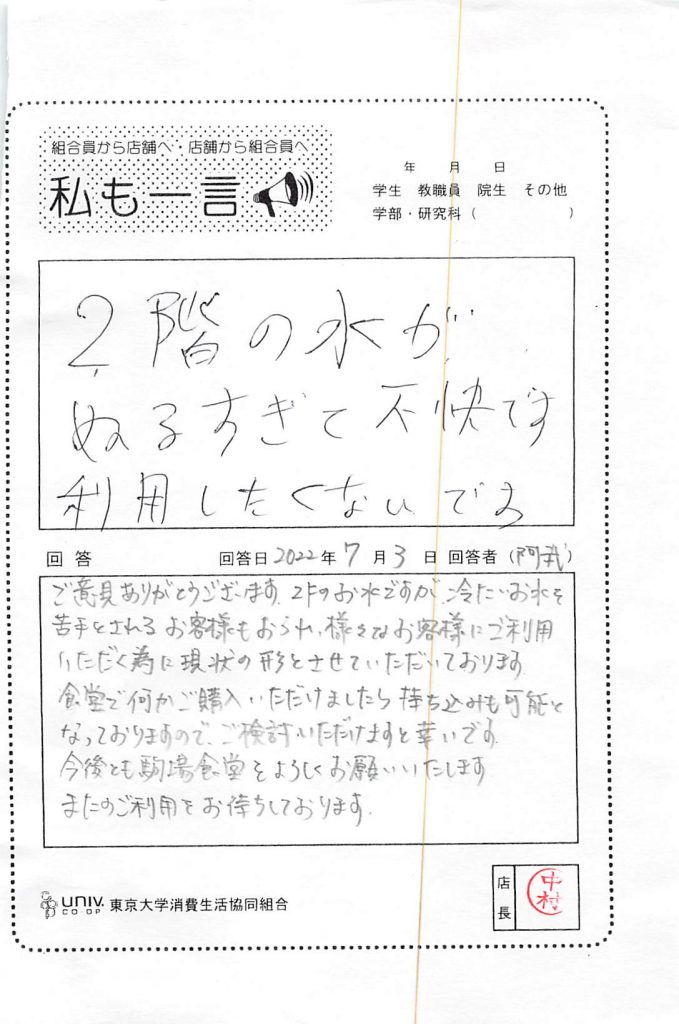 組合員から店舗へ・店舗から組合員へ
私も一言
年 月 日
学生 教職員 院生 その他
学部・研究科 ( )
2階の水が
ぬるすぎて不快です
利用したくないです
回答 回答日 2022年 7月 3日 回答者 (阿武)
ご意見ありがとうございます。2Fのお水ですが、冷たいお水を
苦手とされるお客様もおられ、様々なお客様にご利用
いただく為に現状の形とさせていただいております。
食堂で何かご購入いただけましたら持ち込みも可能と
なっておりますので、ご検討いただけますと幸いです。
今後とも駒場食堂をよろしくお願いいたします。
またのご利用をお待ちしております。
店長
中村
UNIV.
CO-OP
東京大学消費生活協同組合